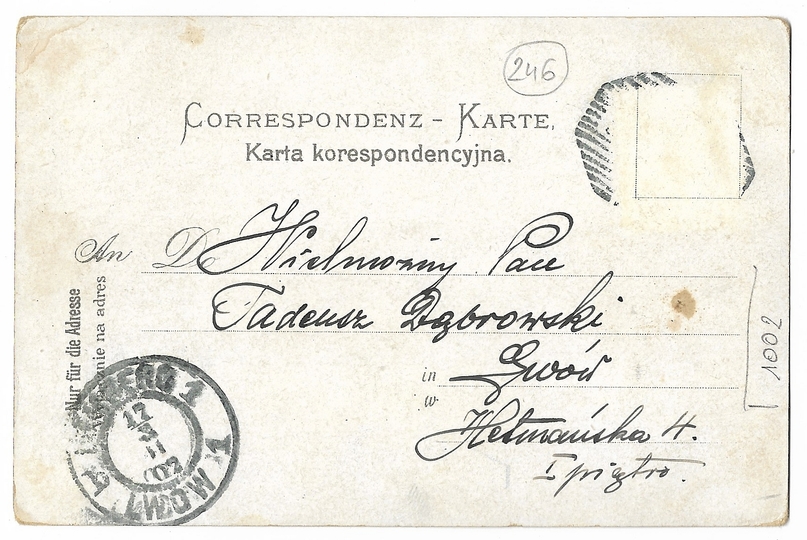 246
CORRESPONDENZ - KARTE.
Karta korespondencyjna.
An Do Wielmożny Pan
Tadeusz Dąbrowski
in Lwów
w
Hetmańska 4.
I piętro.
Nur für die Adresse
Wyłącznie na adres
1002
LEMBERG 1
17
3
11
02
LWÓW 1